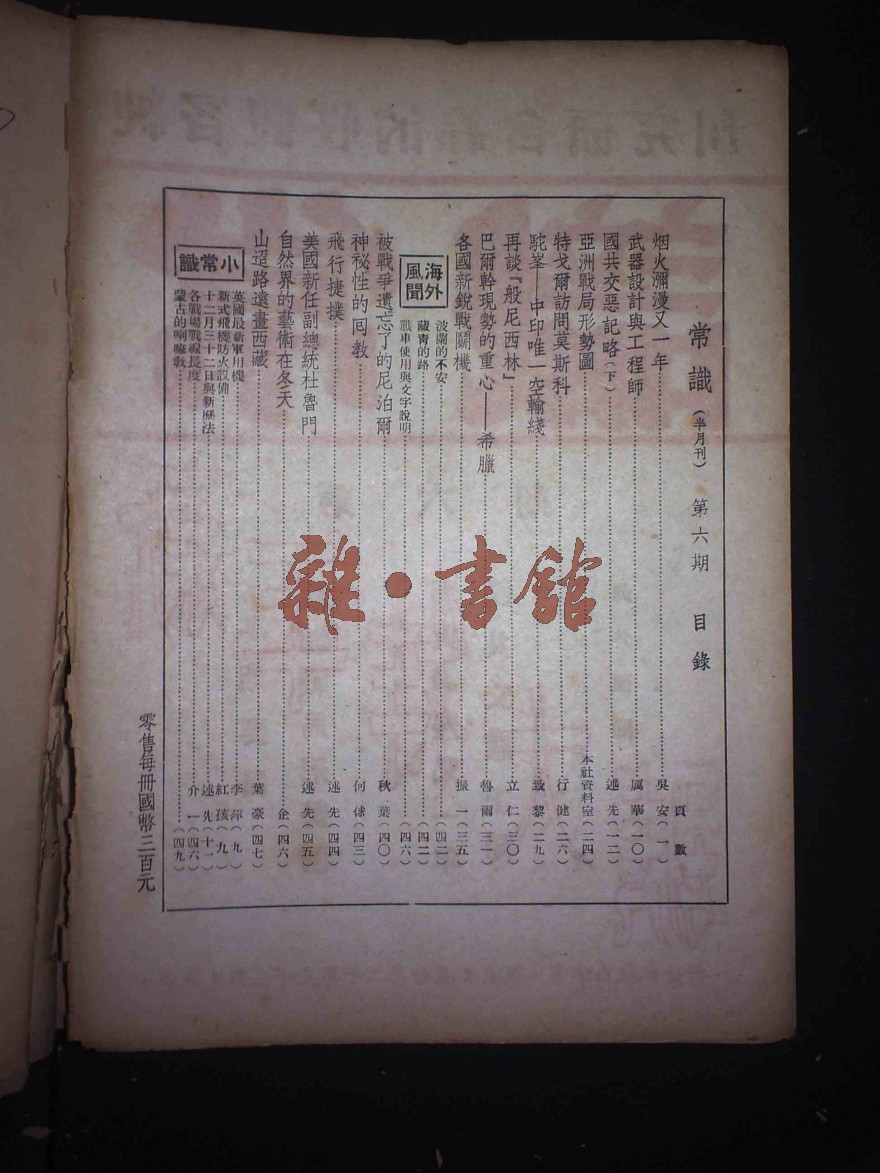 常識（半月刊） 第六期 目錄
頁數
烟火瀰漫又一年 吳安（一）
武器設計與工程師 厲華（一〇）
國共交惡記略（下） 述先（一二）
亞洲戰局形勢圖 本社資料室（二四）
特戈爾訪問莫斯科 行健（二六）
駝峯——中印唯一空輸綫 致黎（二九）
再談『般尼西林』 立仁（三〇）
巴爾幹現勢的重心——希臘 魯爾（三一）
各國新銳戰鬭機 振一（三五）
海外風聞
波蘭的不安（四二）
藏青的路（四二）
戰車使用與文字說明（四六）
被戰爭遺忘了的尼泊爾 秋葉（四〇）
神祕性的囘教 何俅（四三）
飛行捷撲 述先（四四）
美國新任副總統杜魯門 述先（四五）
自然界的藝術在冬天 企（四六）
山迢路遠畫西藏 葉豪（四七）
小常識
英國最新軍用機 李萍（九）
新式飛機防火設備 紅孩（九）
十二月三十二日與新曆法 述先（十一）
各戰場戰線長度 介一（四六）
蒙古的喇嘛教（四九）
零售每冊國幣三百元
雜·書館